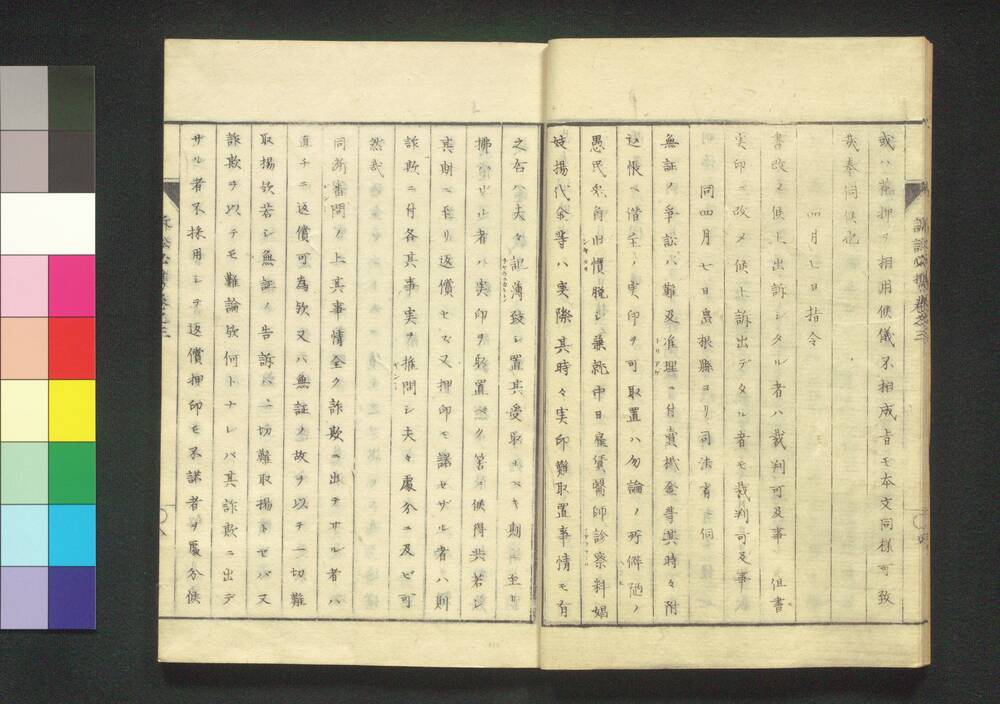 或ハ花押ヲ相用候儀不相成旨モ本文同様可致
哉奉伺候也
四月七日指令
書改メ候上出訴シタル者ハ裁判可及事 但書
実印ニ改メ候上訴出デタル者モ裁判可及事
同四月七日島根縣ヨリ司法省伺
無証ノ争訟ハ難及准理ニ付賣掛金等其時々附
込帳ヘ借主ノ実印ヲ可取置ハ勿論ノ所僻陋ノ
愚民兎角旧慣脱シ兼就中日雇賃醫師診察料娼
妓揚代金等ハ実際其時々実印難取置事情モ有
之右ハ夫々記薄致シ置其受取ルベキ期ニ至リ
拂ハザル者ハ実印ヲ取置然ク筈ニ候得共若シ
其期ニ至リ返償セズ又押印モ諾セザル者ハ則
詐欺ニ付各其事実ヲ推問シ夫々處分ニ及ビ可
然哉
同断審問ノ上其事情全ク詐欺ニ出テザル者ハ
直チニ返償可為欤又ハ無証ノ故ヲ以テ一切難
取揚欤若シ無証ノ告訴ハ一切難取揚トセバ又
詐欺ヲ以テモ難論欤何トナレバ其詐欺ニ出デ
サル者不採用シテ返償押印モ不諾者ヲ處分候